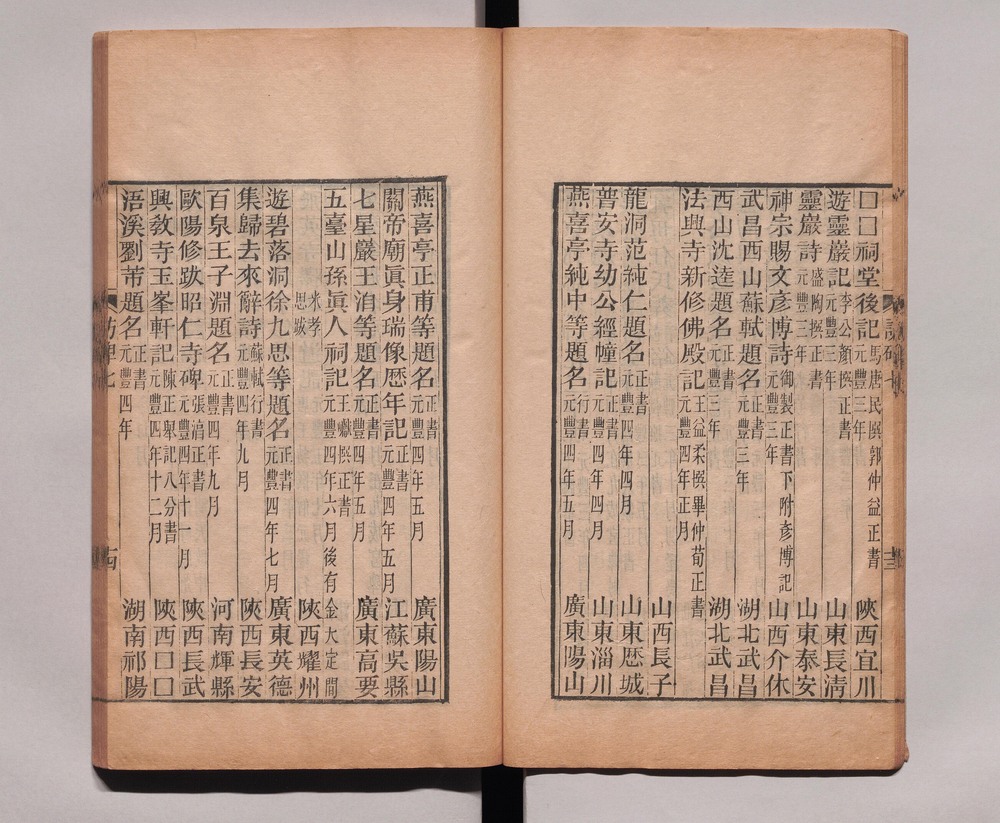 □□祠堂後記馬唐民撰郭仲益正書元豐三年陝西宜川
遊靈巖記李公顏撰正書元豐三年山東長淸
靈巖詩盛陶撰正書元豐三年山東泰安
神宗賜文彥博詩御製正書下附彥博記元豐三年山西介休
武昌西山蘇軾題名正書元豐三年湖北武昌
西山沈逵題名正書元豐三年湖北武昌
法興寺新修佛殿記王益柔撰畢仲荀正書元豐四年正月山西長子
龍洞范純仁題名正書元豐四年四月山東歷城
普安寺幼公經幢記正書元豐四年四月山東淄川
燕喜亭純中等題名行書元豐四年五月廣東陽山
燕喜亭正甫等題名正書元豐四年五月廣東陽山
關帝廟眞身瑞像歷年記正書元豐四年五月江蘇吳縣
七星巖王泊等題名正書元豐四年五月廣東高要
五臺山孫眞人祠記王巘撰正書元豐四年六月後有金大定間
米孝思跋陝西耀州
遊碧落洞徐九思等題名正書元豐四年七月廣東英德
集歸去來辭詩蘇軾行書元豐四年九月陝西長安
百泉王子淵題名正書元豐四年九月河南輝縣
歐陽修跋昭仁寺碑張淯正書元豐四年十一月陝西長武
興敎寺玉峯軒記陳正舉記八分書元豐四年十二月陝西□□
浯溪劉芾題名正書元豐四年湖南祁陽